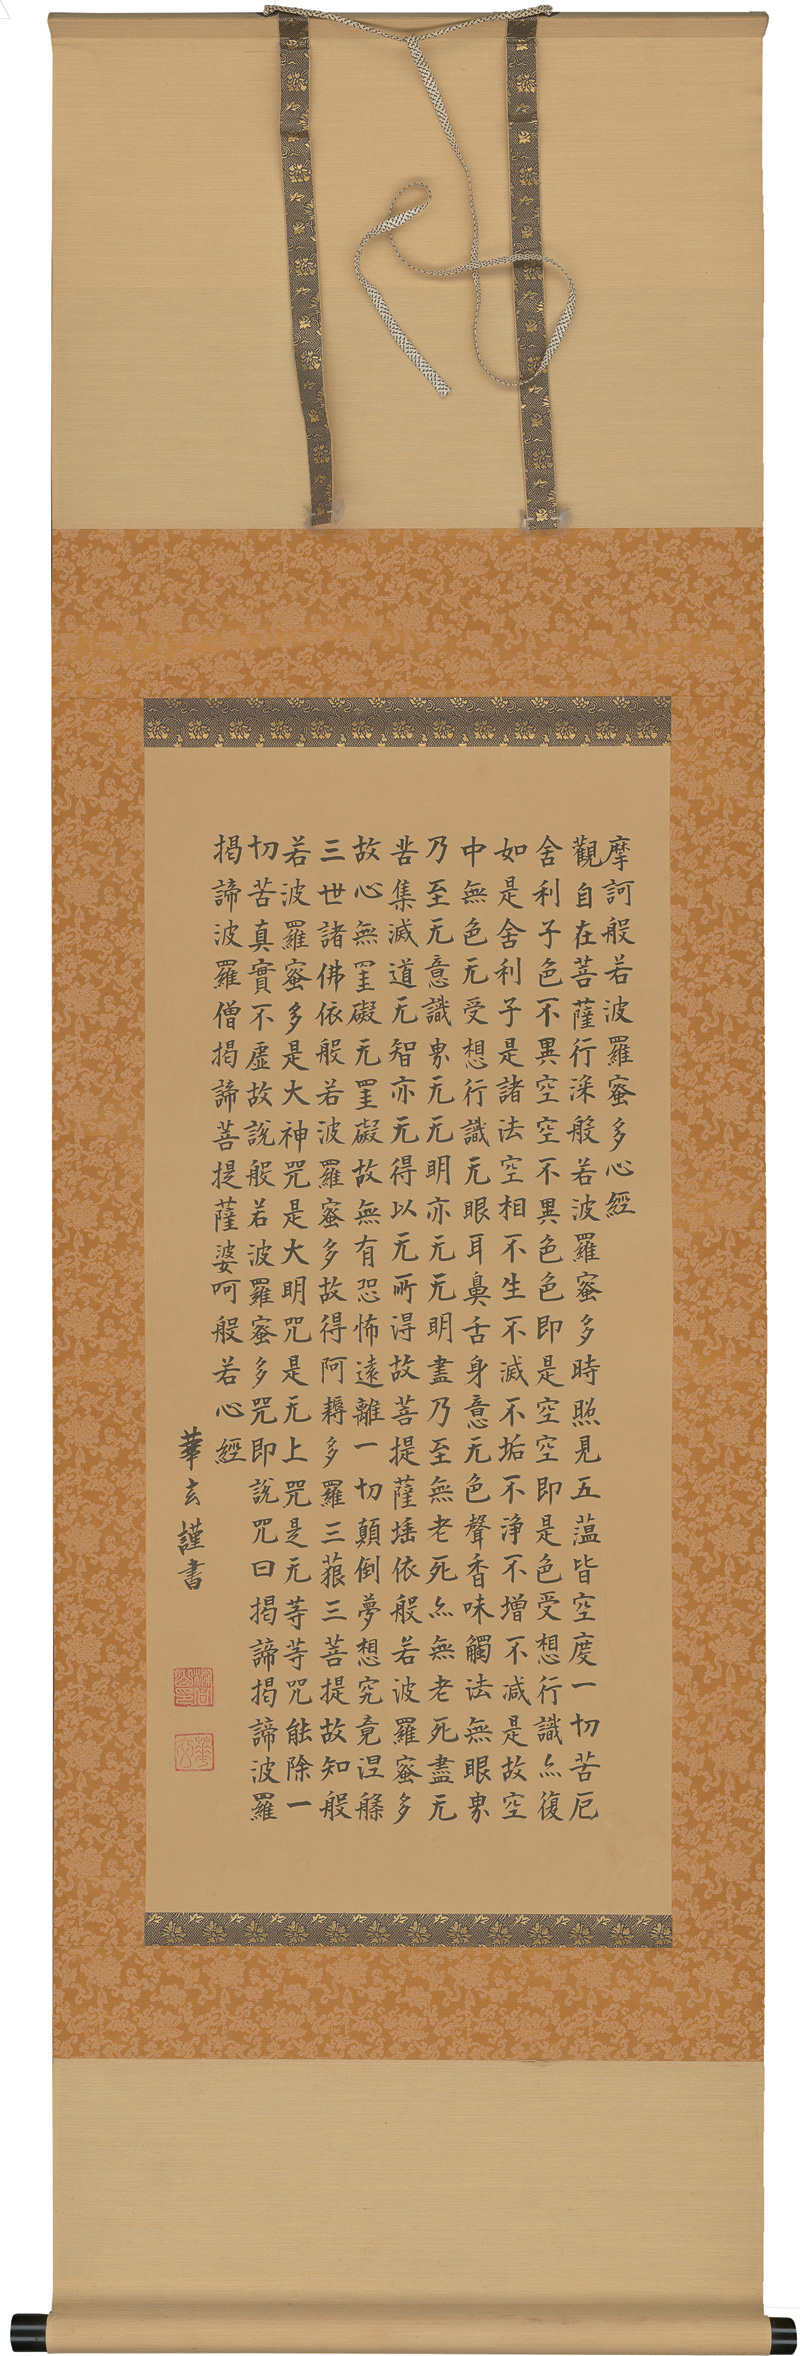 摩訶般若波羅蜜多心經
觀自在菩薩行深般若波羅蜜多時照見五蕰皆空度一切苦厄
舍利子色不異空空不異色色即是空空即是色受想行識亦復
如是舍利子是諸法空相不生不滅不垢不淨不增不減是故空
中無色无受想行識无眼耳鼻舌身意无色聲香味觸法無眼界
乃至无意識界无无明亦无无明盡乃至無老死亦無老死盡无
苦集滅道无智亦无得以无所得故菩提薩埵依般若波羅蜜多
故心無罣礙无罣礙故無有恐怖遠離一切顛倒夢想究竟涅槃
三世諸佛依般若波羅蜜多故得阿耨多羅三藐三菩提故知般
若波羅蜜多是大神咒是大明咒是无上咒是无等等咒能除一
切苦真實不虛故說般若波羅蜜多咒即說咒曰揭諦揭諦波羅
揭諦波羅僧揭諦菩提薩婆呵般若心經
華玄謹書